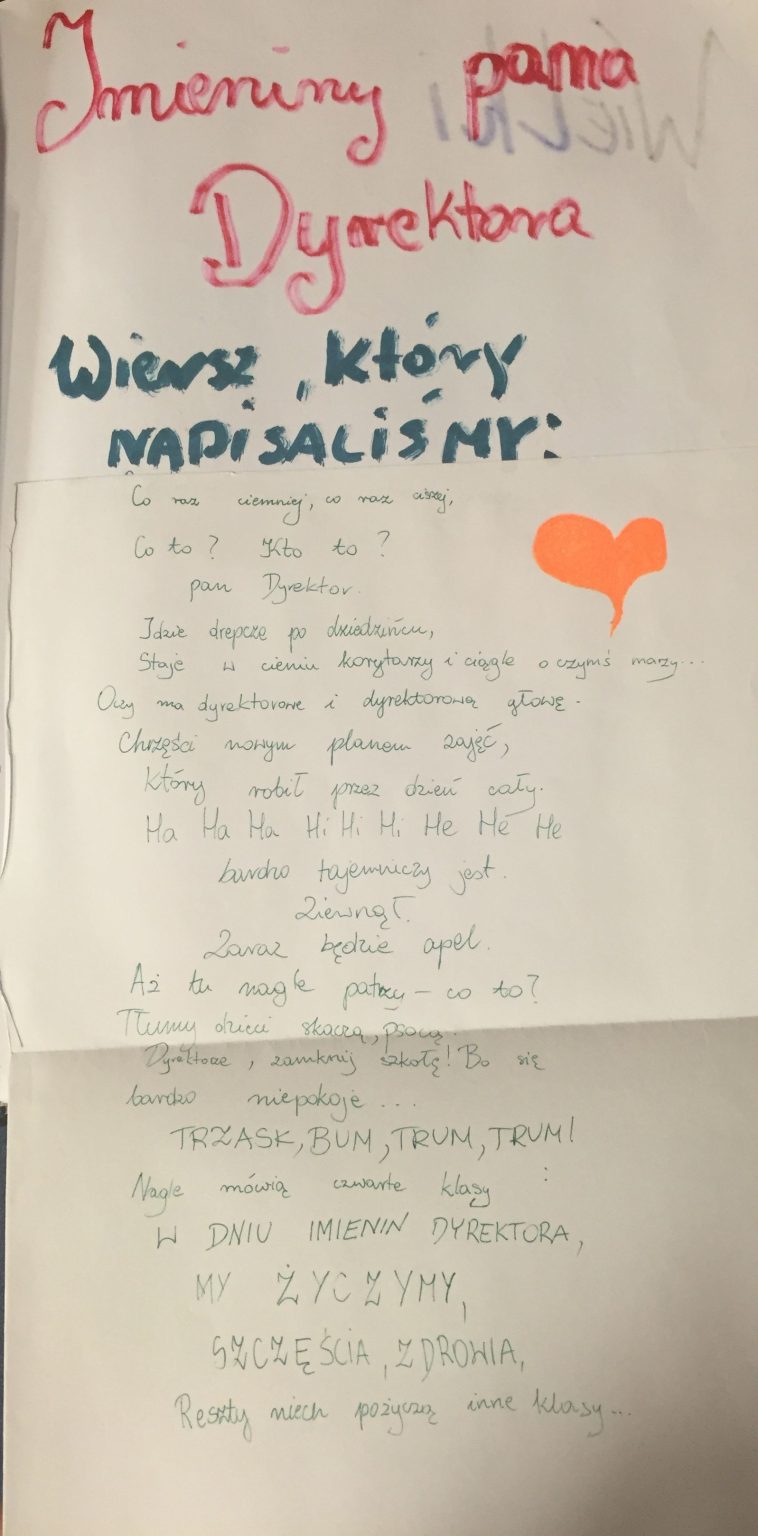 Imieniny pana
Dyrektora
Wiersz, który
NAPISALIŚMY:
Co raz ciemniej, co raz ciszej,
Co to? Kto to?
pan Dyrektor.
Idzie drepcze po dziedzińcu,
Staje w cieniu korytarzy i ciągle o czymś marzy...
Oczy ma dyrektorowe i dyrektorową głowę.
Chrzęści nowym planem zajęć,
Który robił przez dzień cały.
Ha Ha Ha Hi Hi Hi He He He
bardzo tajemniczy jest.
Ziewnął.
Zaraz będzie apel.
Aż tu nagle patrzy - co to?
Tłumy dzieci skaczą, psocą.
Dyrektorze, zamknij szkołę! Bo się
bardzo niepokoję...
TRZASK, BUM, TRUM, TRUM!
Nagle mówią czwarte klasy:
W DNIU IMIENIN DYREKTORA,
MY ŻYCZYMY,
SZCZĘŚCIA, ZDROWIA,
Reszty niech pożyczą inne klasy...